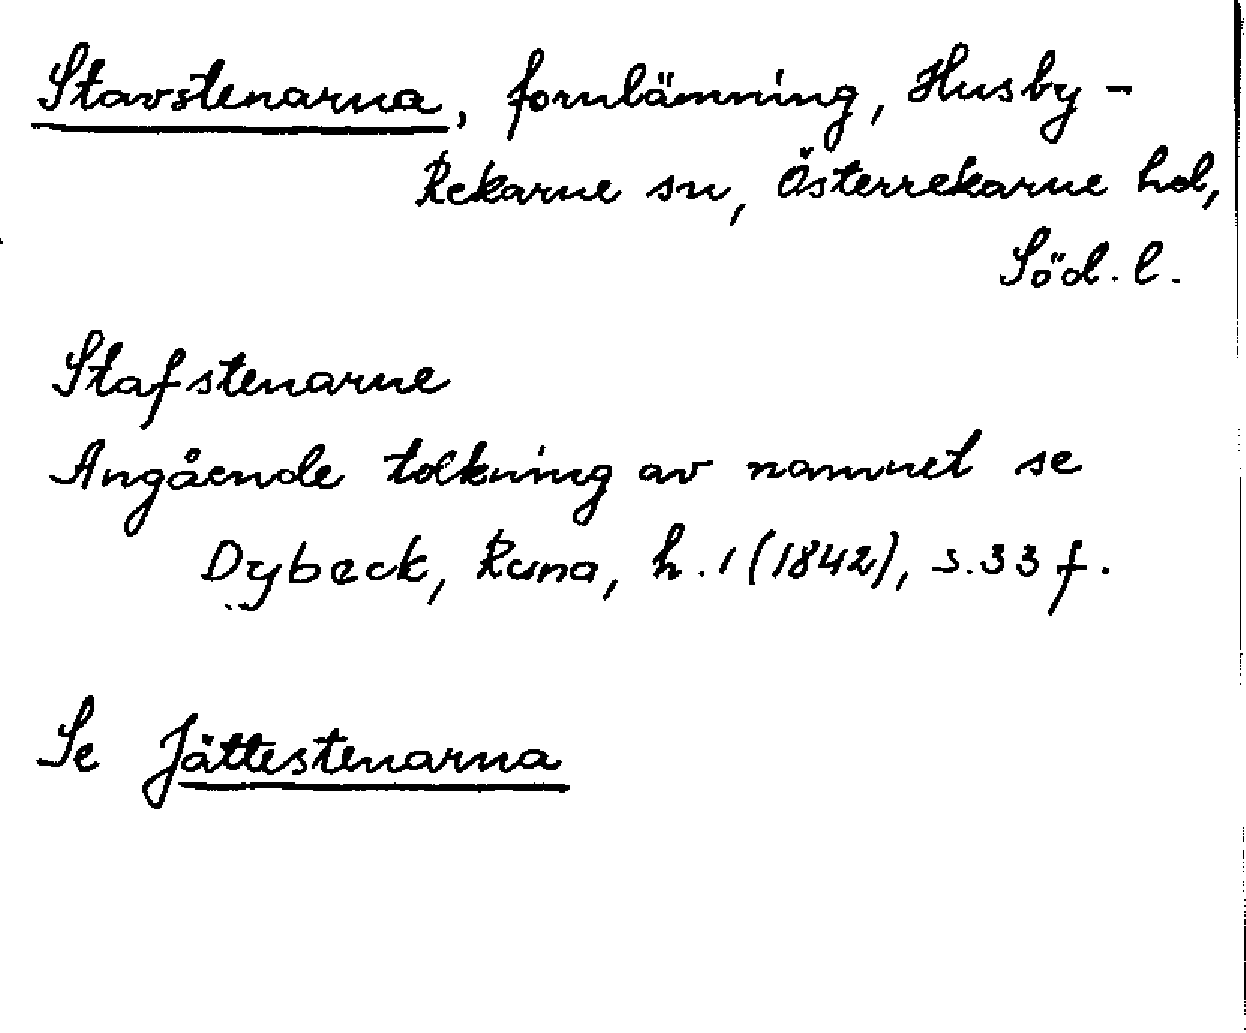 Stavstenarna, fornlämning, Husby-
Rekarne sn, Österrekarne hd,
Söd. l.
Stafstenarne
Angående tolkning av namnet se
Dybeck, Runa, h. 1 (1842), s. 33 f.
Se Jättestenarna